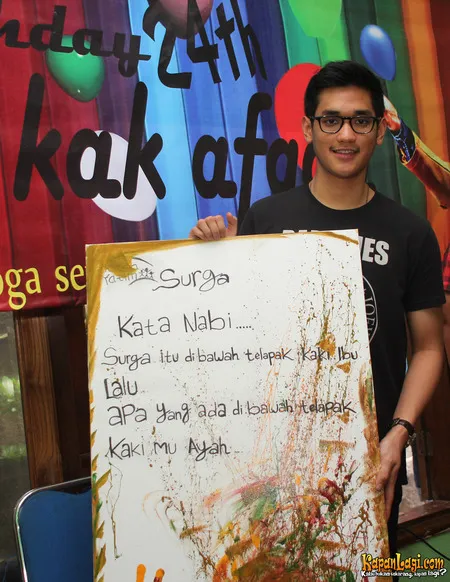 nday 24th
kak afga
oga se
Surga
Kata Nabi.....
Surga itu dibawah telapak kaki Ibu
Lalu
apa yang ada dibawah telapak
kaki mu Ayah...
KapanLagi.com
Kalau bukan sekarang, kapan lagi?